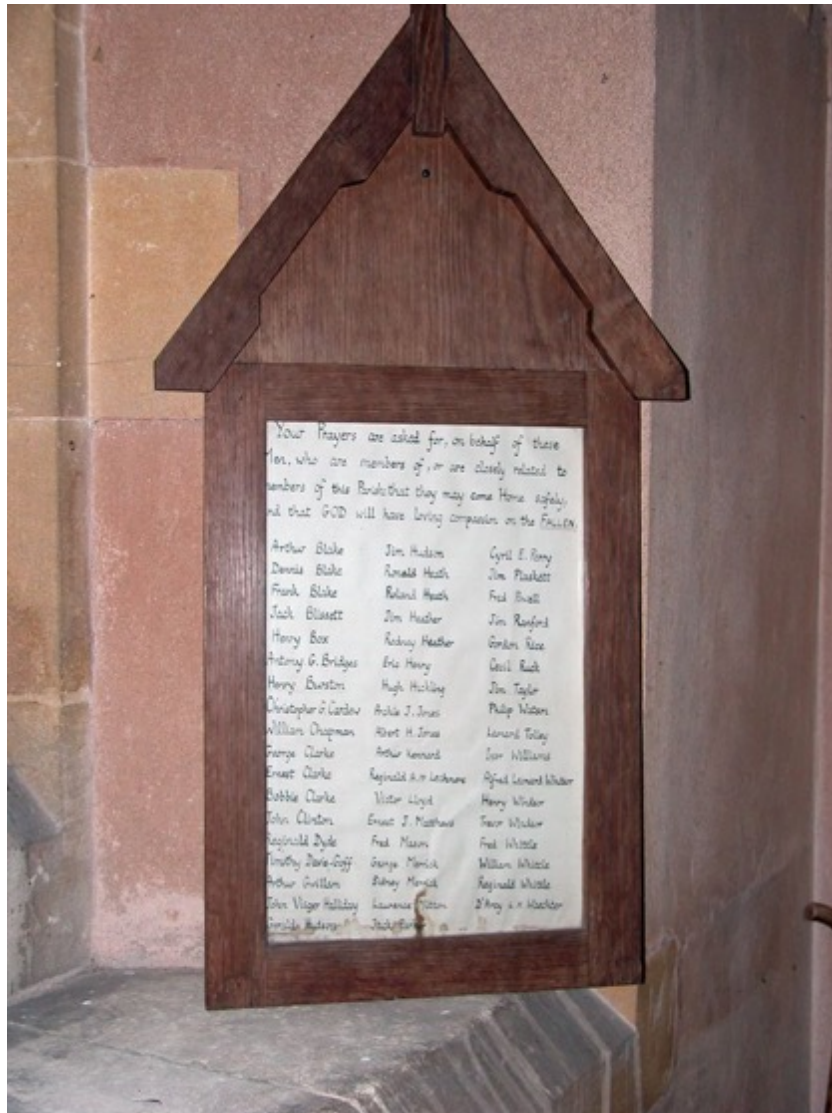 Your Prayers are asked for, on behalf of these
Men, who are members of, or are closely related to
members of this Parish: that they may come Home safely,
and that GOD will have loving compassion on the FALLEN.
Arthur Blake
Dennis Blake
Frank Blake
Jack Blissett
Henry Box
Antony G. Bridges
Henry Burston
Christopher G. Cardew
William Chapman
George Clarke
Ernest Clarke
Bobbie Clarke
John Clinton
Reginald Dyde
Timothy Davie-Goff
Arthur Gwillam
John Visger Halliday
Hudson
Jim Hudson
Ronald Heath
Roland Heath
Jim Heather
Rodney Heather
Eric Henry
Hugh Hickling
Archie J. Jones
Albert H. Jones
Arthur Kennard
Reginald A. Lechmere
Victor Lloyd
Ernest J. Matthews
Fred Mason
George Merrick
Sidney Merrick
Laurence
Jack
Cyril E. Perry
Jim Plaskett
Fred Powell
Jim Ranford
Gordon Rice
Cecil Ruck
Jim Taylor
Philip Waters
Leonard Tolley
Ivor Williams
Alfred Leonard Windsor
Henry Windsor
Trevor Windsor
Fred Whittle
William Whittle
Reginald Whittle
D'Arcy